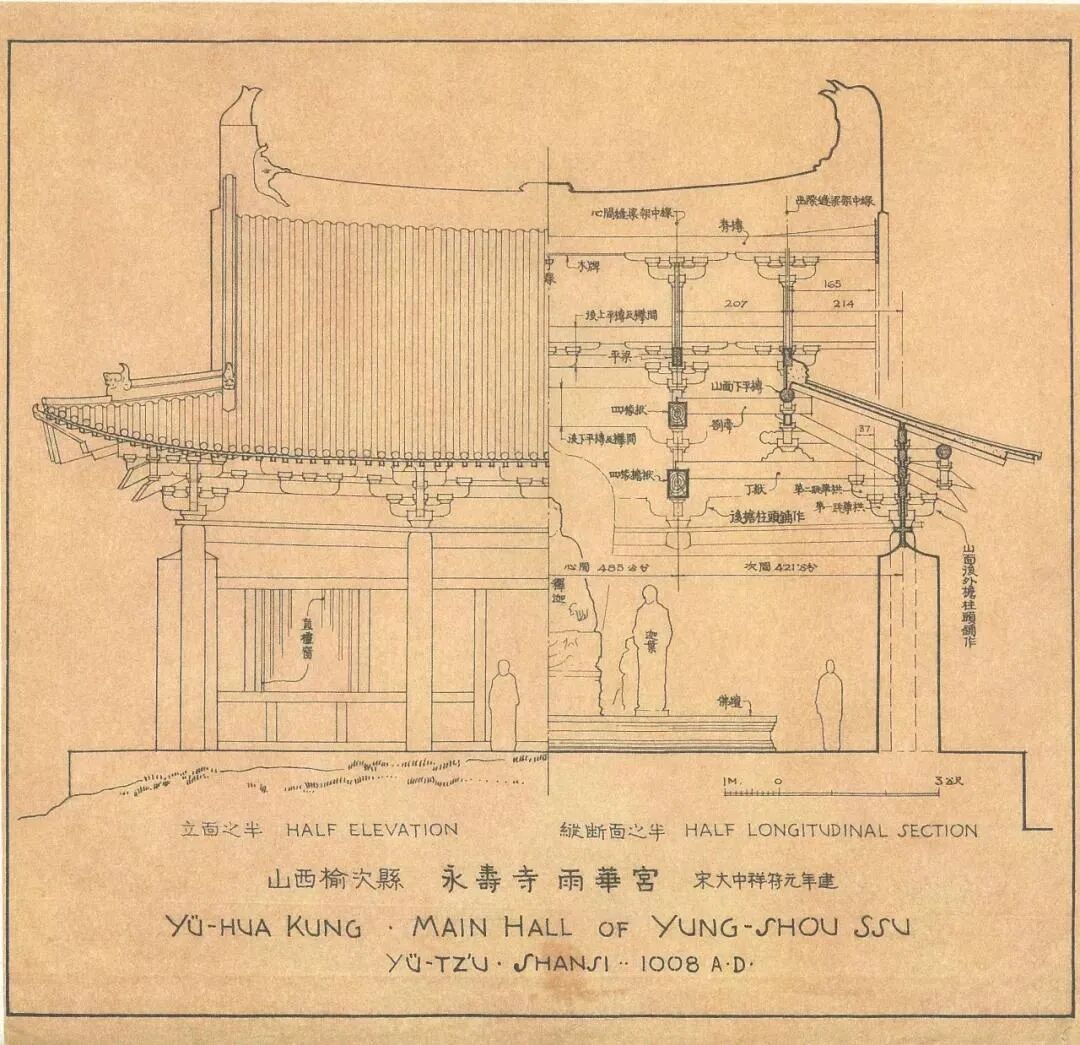 心間縫梁架中線
出際縫梁架中線
脊槫
中線
木牌
165
207
214
後上平槫及襻間
平梁
山面下平槫
四椽栿
劄牽
37
後下平槫及襻間
四椽檐栿
丁栿
第二跳華栱
第一跳華栱
後檐柱頭鋪作
山面後外檐柱頭鋪作
心間 485公分
次間 421公分
釋迦
迦葉
直欞窗
佛壇
1M. 0 3公尺
立面之半 HALF ELEVATION
縱断面之半 HALF LONGITUDINAL SECTION
山西榆次縣 永壽寺雨華宮 宋大中祥符元年建
YÜ-HUA KUNG · MAIN HALL OF YUNG-SHOU SSU
YÜ-TZ'U · SHANSI ·· 1008 A·D·